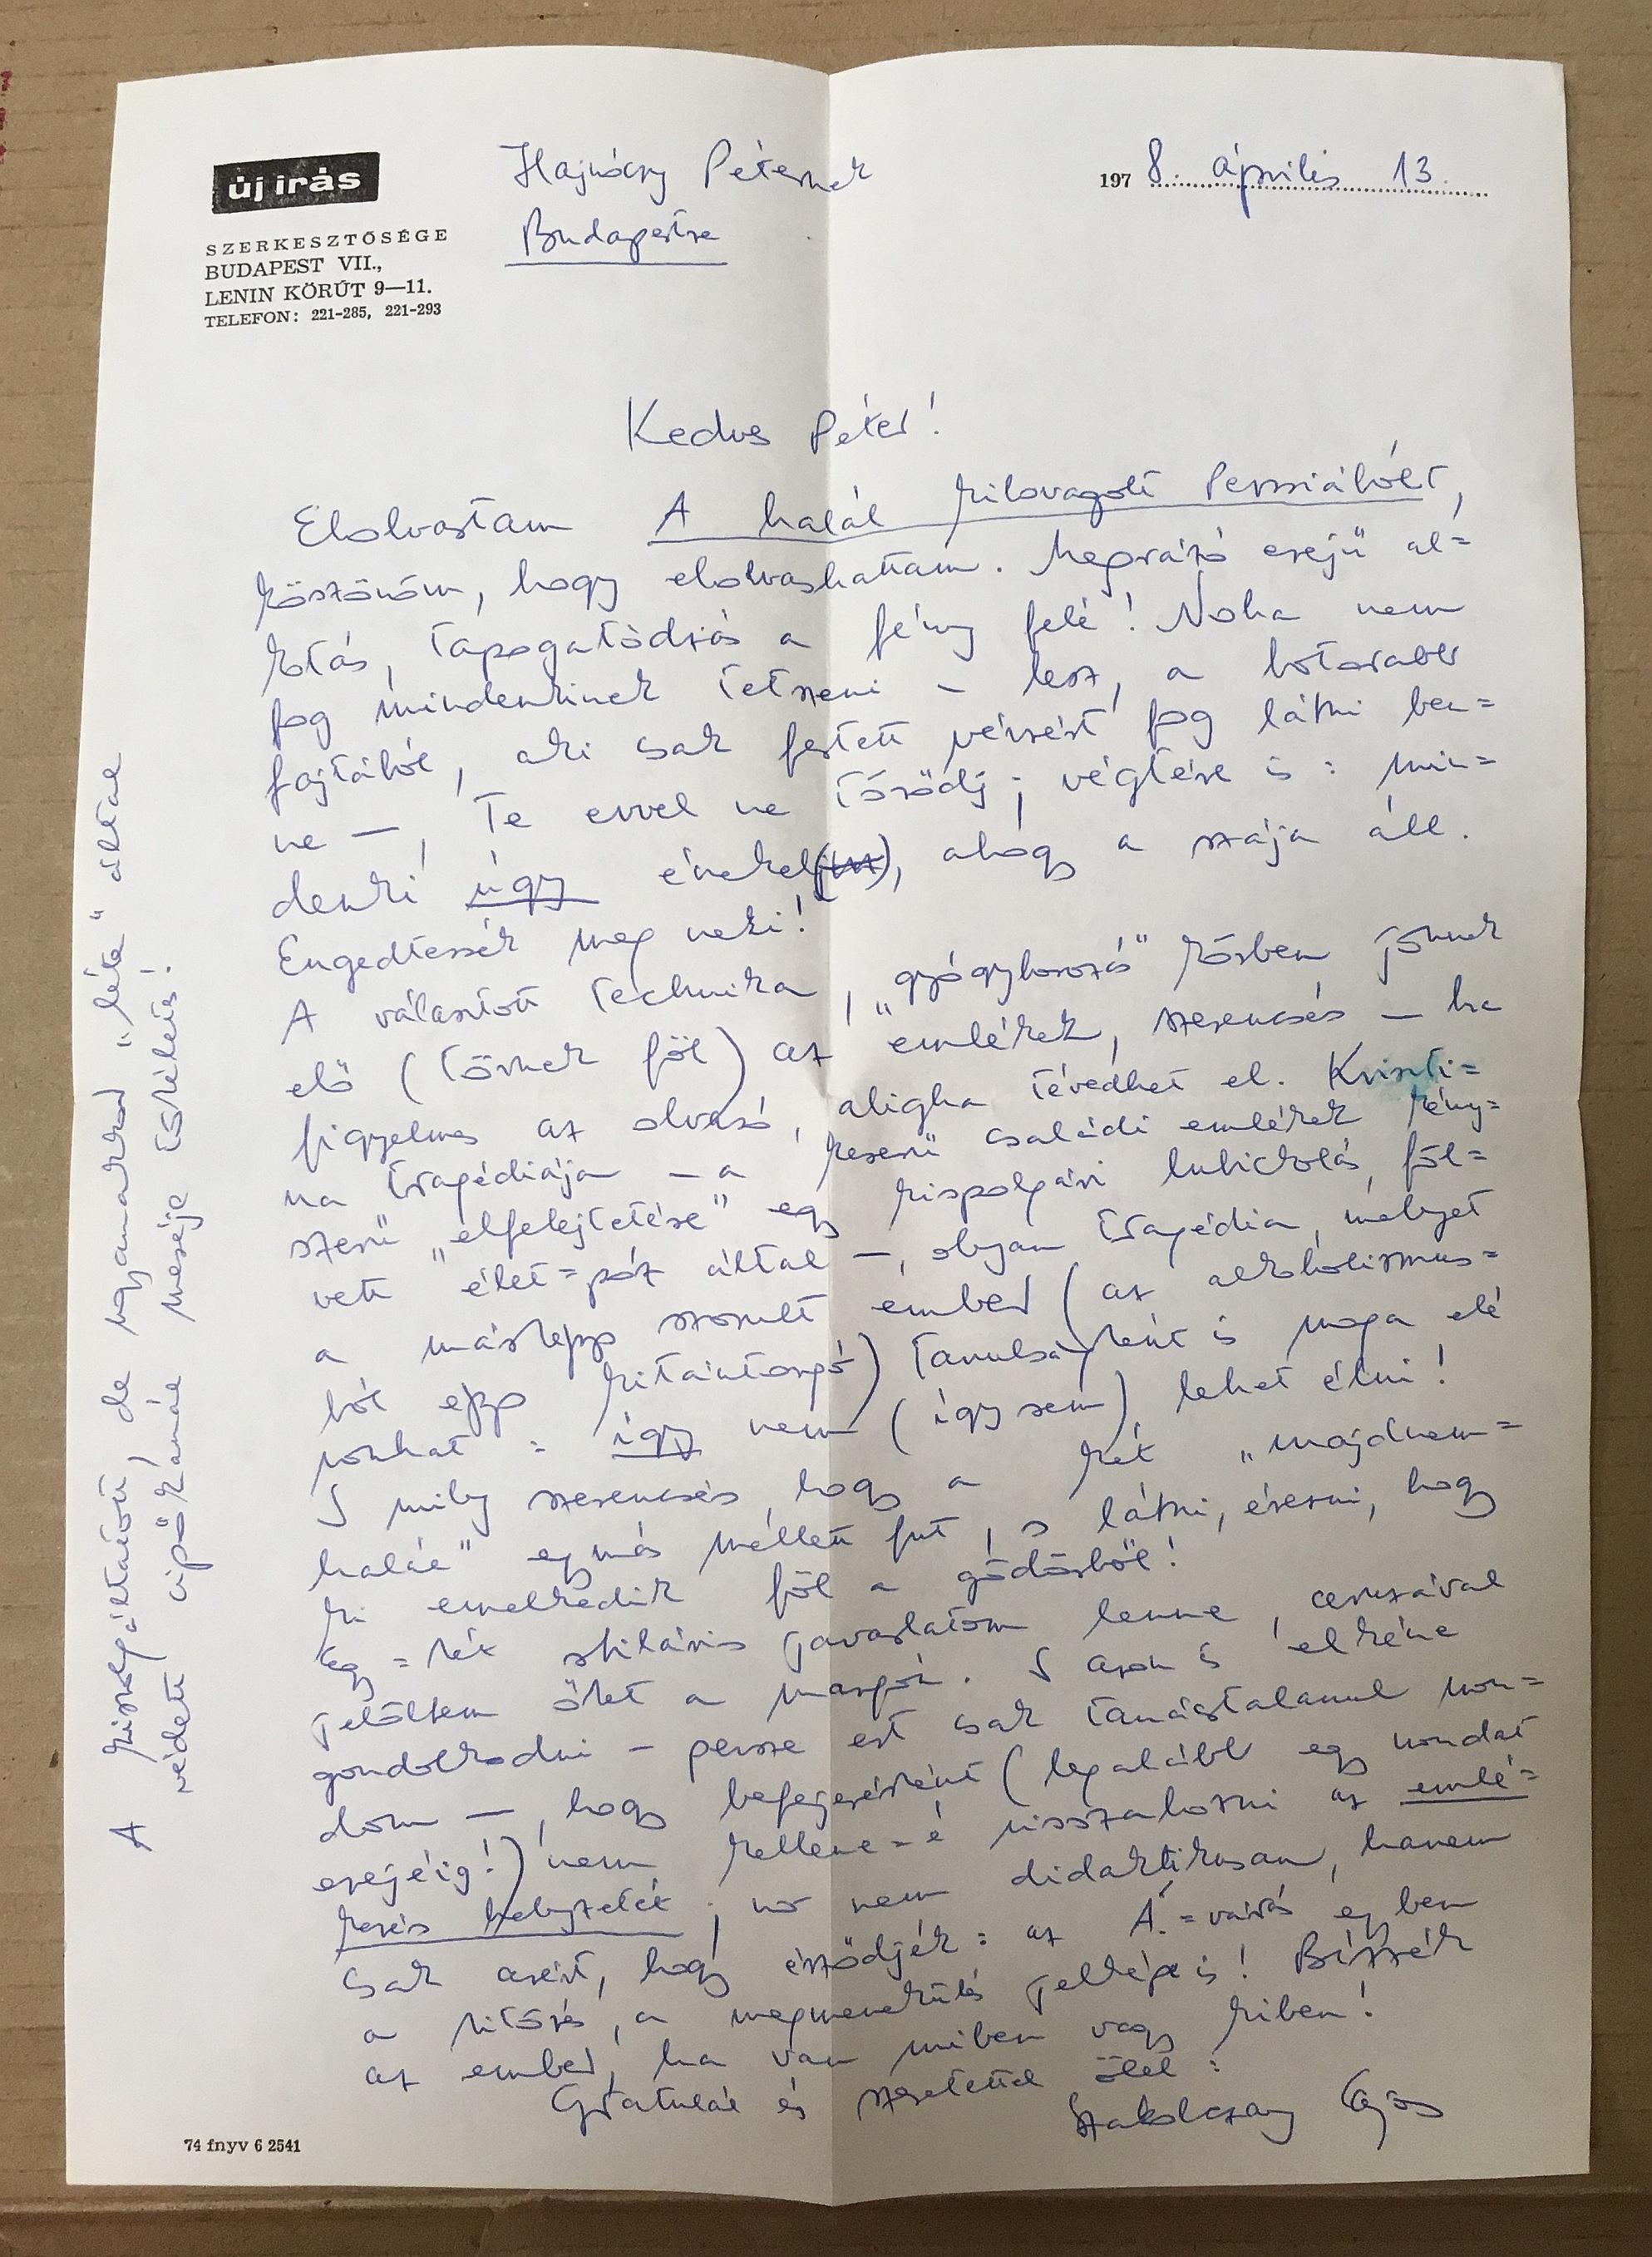 új írás
SZERKESZTŐSÉGE
BUDAPEST VII.,
LENIN KÖRÚT 9—11.
TELEFON: 221-285, 221-293
Hajnóczy Péternek
Budapestre
197 8. április 13.
Kedves Péter!
Elolvastam A halál kilovagolt Perzsiából-t,
köszönöm, hogy elolvashattam. Megrázó erejű al=
kotás, tapogatódzás a fény felé! Noha nem
fog mindenkinek tetszeni – lesz, a botorabb
fajtából, aki csak festett vérzést fog látni ben=
ne —, Te evvel ne törődj; végtére is: min=
denki úgy énekel, ahogy a szája áll.
Engedtessék meg neki!
A választott technika, „gyógyborozás" közben jönnek
elő (törnek föl) az emlékek, szerencsés — ha
figyelmes az olvasó, aligha tévedhet el. Kriszti=
na tragédiája — a keserű családi emlékek kény=
szerű „elfelejtetése" egy kispolgári lubickolás, föl=
vett élet=póz által —, olyan tragédia, melyet
a másképp szorult ember (az alkoholizmus=
ból épp kitántorgó) tanulságként is maga elé
vonhat: így nem (így sem) lehet élni!
S mily szerencsés, hogy a két „majdnem=
halál" egymás mellett fut, s látni, érezni, hogy
ki emelkedik föl a gödörből!
Egy=két stiláris javaslatom lenne, ceruzával
jelöltem őket a margón. S azon is el kéne
gondolkodni – persze ezt csak tanácstalanul mon=
dom —, hogy befejezésként (legalább egy mondat
erejéig!) nem kellene-é visszahozni az emlé=
kezés helyzetét; no nem didaktikusan, hanem
csak azért, hogy érződjék: az Á.=vízió egyben
a kitörés, a megmenekülés jelképe is! Bízzék
az ember, ha van miben vagy kiben!
Gratulál és szeretettel ölel:
Szakolczay Lajos
A kiszolgáltatott, de ugyanakkor „léte" által
védett cipőkanál meséje tökéletes!
74 fnyv 6 2541